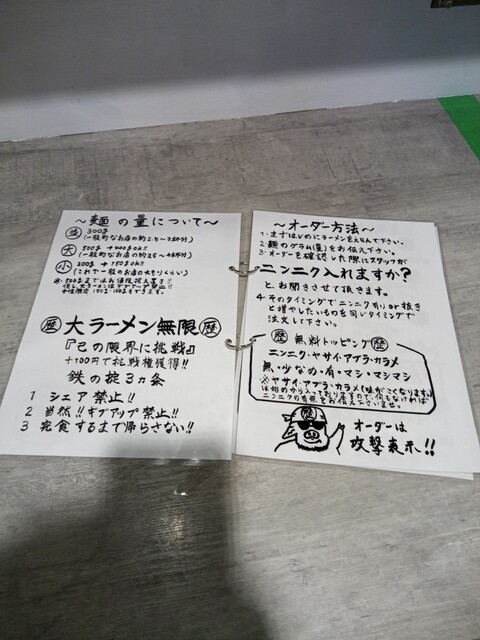 ～麺の量について～
並 300g
(一般的なお店の約2.5～3杯分)
大 500g → 400g OK!!
(一般的なお店の約3.5～4杯分)
小 200g → 150g OK!!
(これで一般のお店の大もりくらい)
歴 大ラーメン無限 歴
『己の限界に挑戦』
+100円で挑戦権獲得!!
鉄の掟3ヵ条
1 シェア禁止!!
2 当然!!ギブアップ禁止!!
3 完食するまで帰らさない!!
～オーダー方法～
1・まずはじめにラーメンをえらんで下さい。
2・麺のグラム(量)をお伝え下さい。
3・オーダーを確認した際にスタッフが
ニンニク入れますか?
と、お聞きさせて頂きます。
4 そのタイミングでニンニク有り or 抜き
と増やしたいものを同じタイミングで
注文して下さい。
歴 無料トッピング 歴
ニンニク・ヤサイ・アブラ・カラメ
無・少なめ・有・マシ・マシマシ
※ヤサイ・アブラ・カラメ(味がこくなります)
は始めから入っており
歴
オーダーは
攻撃表示!!